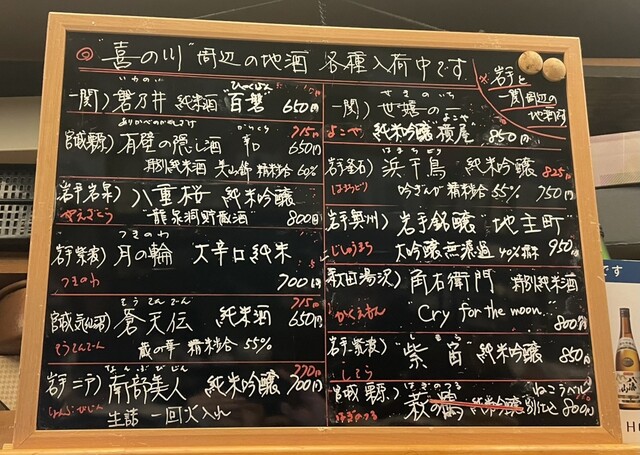 ◎"喜の川"周辺の地酒 各種入荷中です
岩手と
一関周辺の
地酒
いわのい
一関) 磐乃井 純米酒 "百磐" 650円
ありかべのかくしざけ からくち
有壁の隠し酒 辛口 715円 650円
特別純米酒 美山錦 精米歩合 60%
岩手岩泉) 八重桜 純米吟醸
やえざくら "龍泉洞貯蔵酒" 800円
つきのわ
岩手紫波) 月の輪 大辛口純米
つきのわ 700円
そうてんでん
宮城気仙沼) 蒼天伝 純米酒 715円 650円
そうてんでん 蔵の華 精米歩合 55%
なんぶびじん
岩手二戸) 南部美人 純米吟醸 770円 700円
なんぶびじん 生詰 一回火入れ
せきのいち
一関) 世嬉の一
よこや 純米吟醸 横屋 850円
はまちどり
岩手釜石) 浜千鳥 純米吟醸 825円
はまちどり 吟ぎんが 精米歩合 55% 750円
岩手奥州) 岩手銘醸 "地主町"
じしゅまち 大吟醸無濾過 40%精米 950円
秋田湯沢) 角右衛門 特別純米酒
かくえもん "Cry for the moon." 800円
岩手紫波) "紫宙" 純米吟醸 850円
しそら
はぎのつる ねこラベル
宮城栗原) 萩の鶴 純米吟醸 別仕込 800円
はぎのつる
です